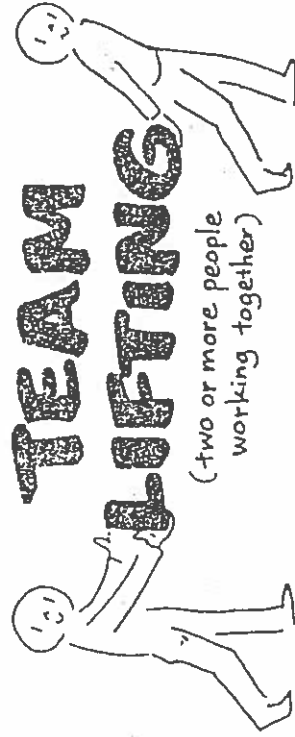 TEAM
LIFTING
(two or more people
working together)